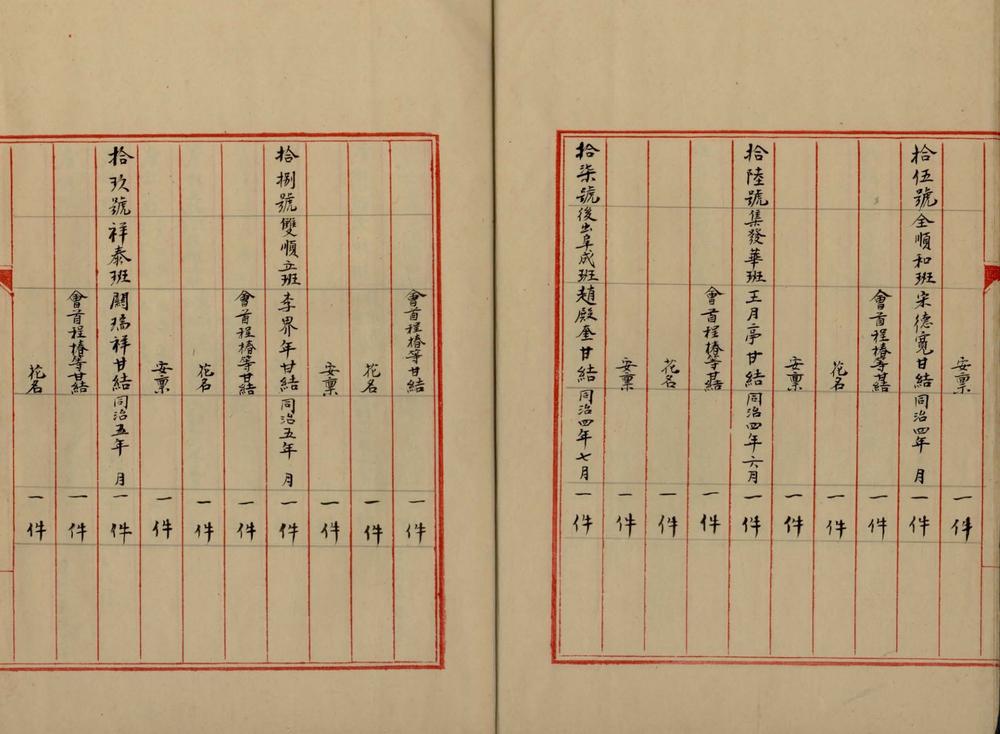 安禀 一件
拾伍號全順和班宋德寬甘結同治四年 月一件
會首程椿等甘結 一件
花名 一件
安禀 一件
拾陸號集發華班王月亭甘結同治四年六月一件
會首程椿等甘結 一件
花名 一件
安禀 一件
拾柒號後出阜成班趙殿奎甘結同治四年七月一件
會首程椿等甘結 一件
花名 一件
安禀 一件
拾捌號雙順立班李界年甘結同治五年 月一件
會首程椿等甘結 一件
花名 一件
安禀 一件
拾玖號祥泰班關瑞祥甘結同治五年 月一件
會首程椿等甘結 一件
花名 一件